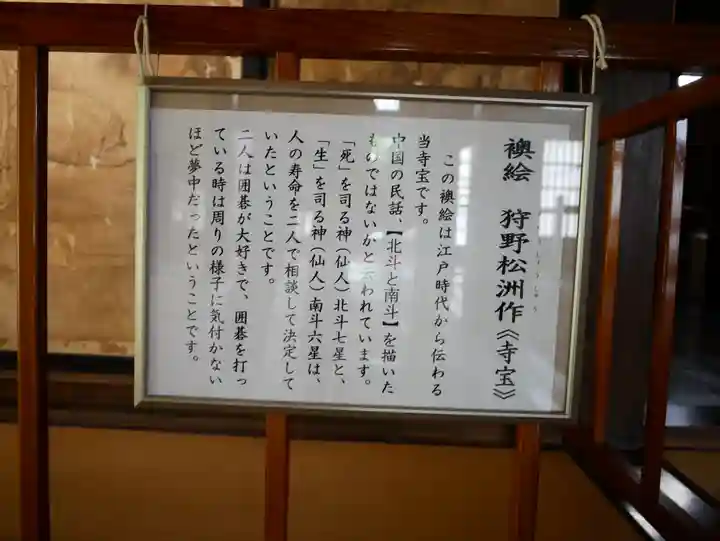 襖絵　狩野松洲作《寺宝》
この襖絵は江戸時代から伝わる
当寺宝です。
中国の民話、【北斗と南斗】を描いた
ものではないかと云われています。
「死」を司る神（仙人）北斗七星と、
「生」を司る神（仙人）南斗六星は、
人の寿命を二人で相談して決定して
いたということです。
二人は囲碁が大好きで、囲碁を打っ
ている時は周りの様子に気付かない
ほど夢中だったということです。